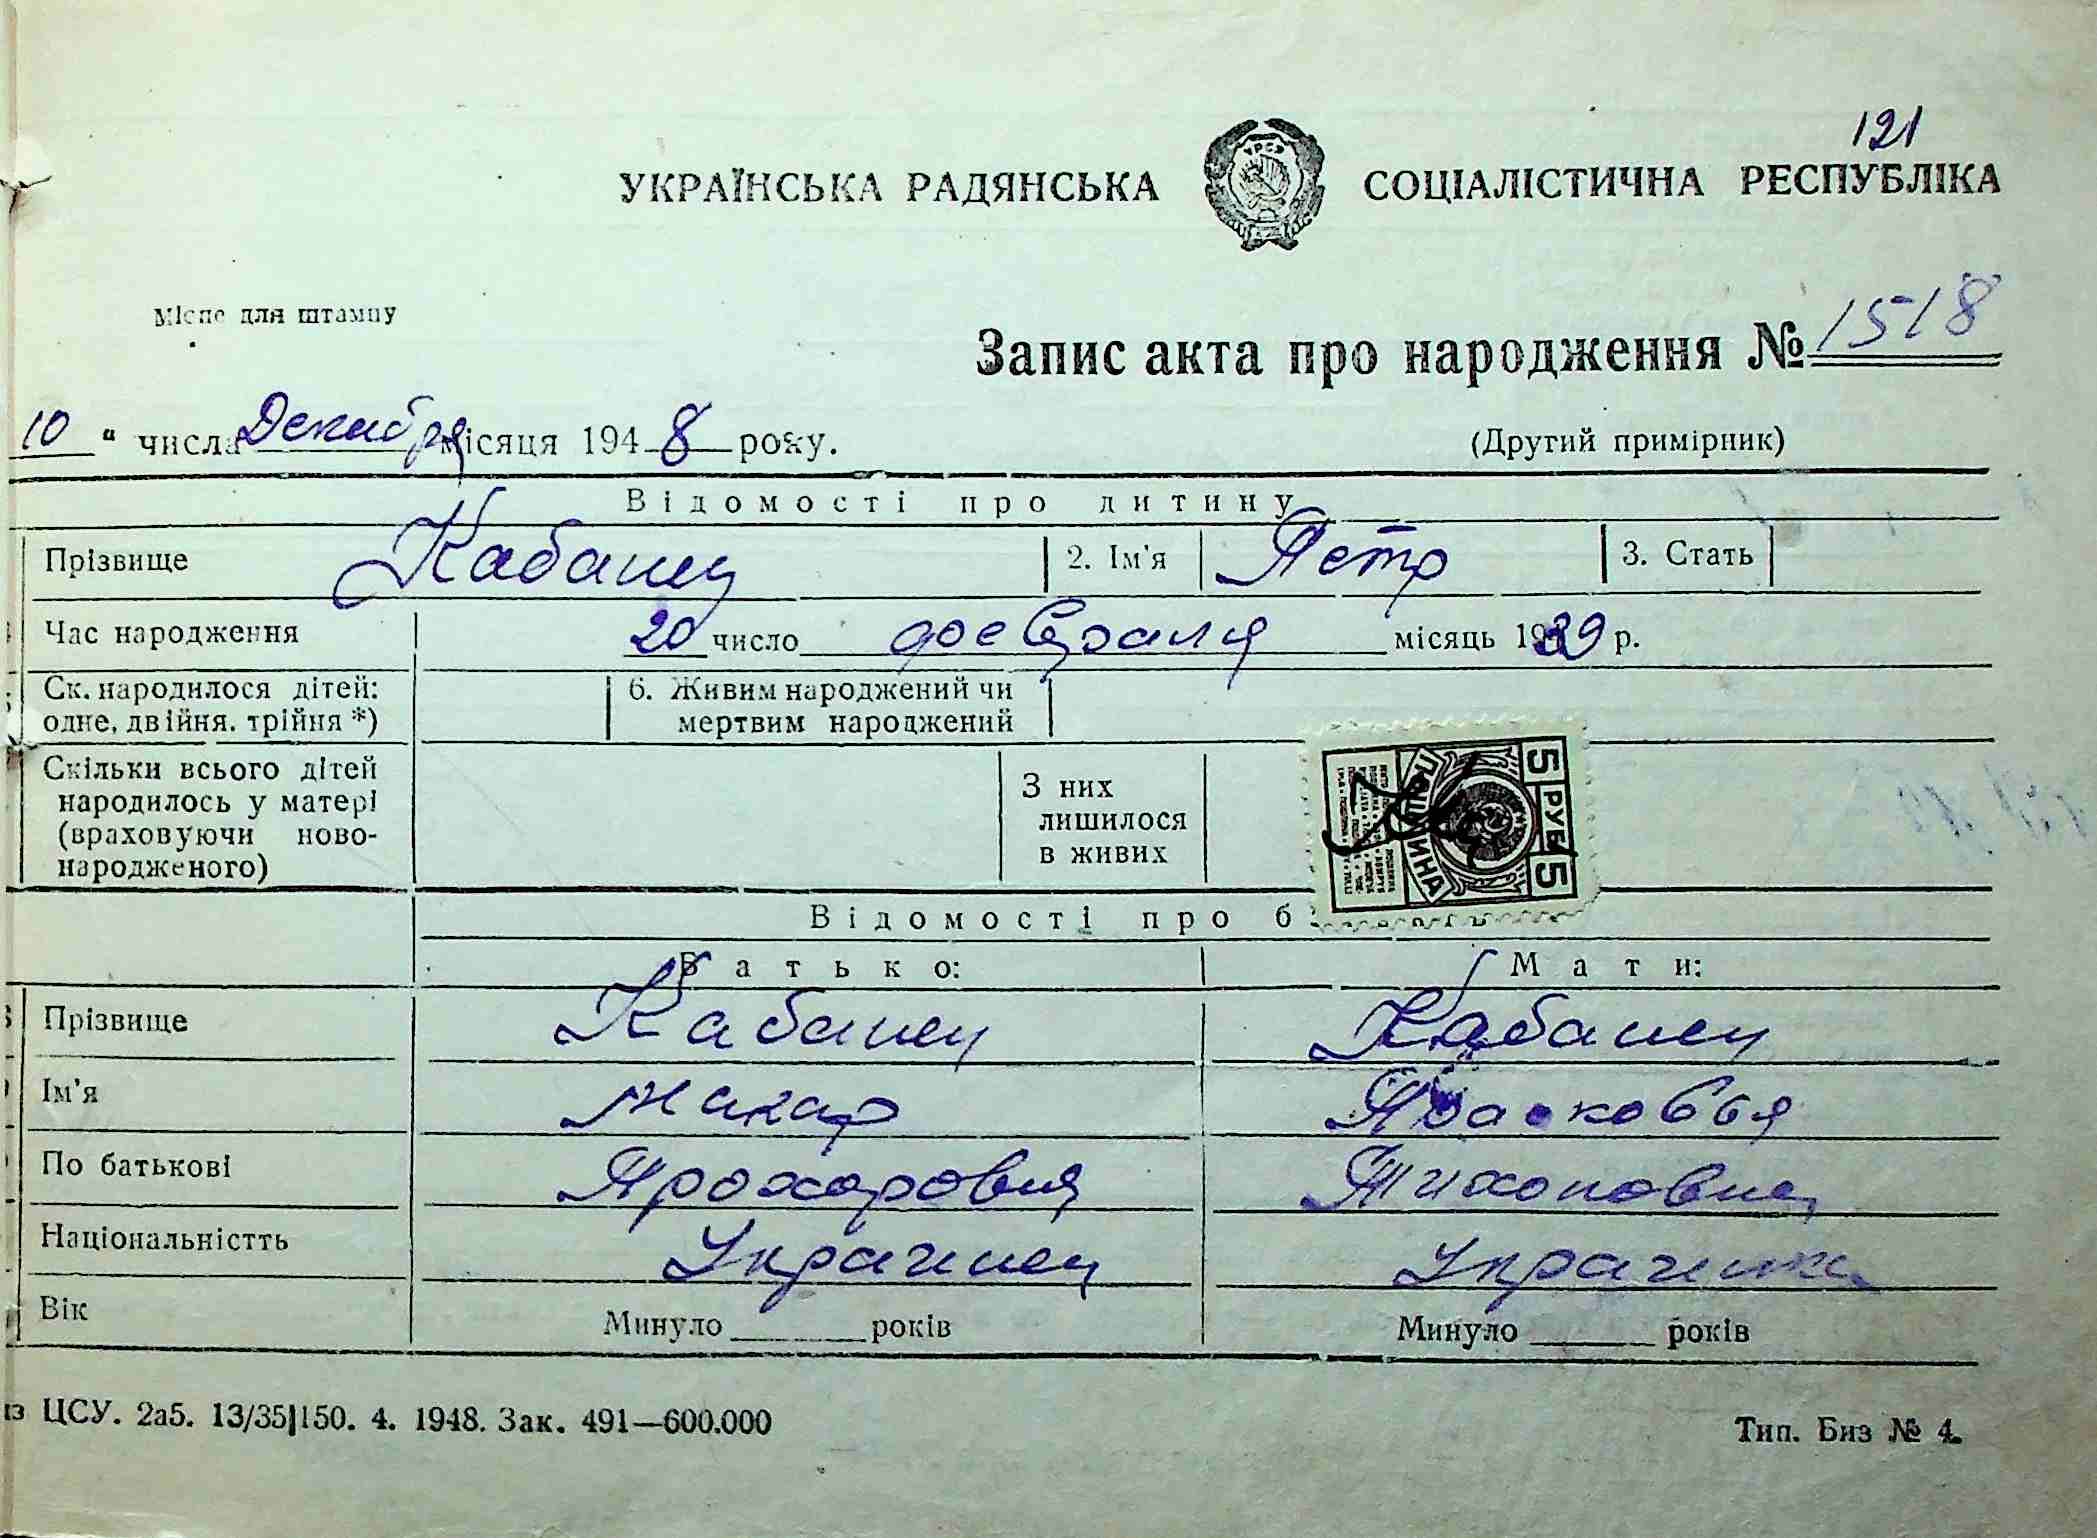 121
УКРАЇНСЬКА РАДЯНСЬКА СОЦІАЛІСТИЧНА РЕСПУБЛІКА
УРСР
Місце для штампу
Запис акта про народження № 1518
10 " числа Декабря місяця 1948 року. (Другий примірник)
Відомості про дитину
Прізвище Кабанец 2. Ім'я Петр 3. Стать
Час народження 20 число февраля місяць 1939 р.
Ск. народилося дітей: 6. Живим народжений чи
одне, двійня, трійня *) мертвим народжений
Скільки всього дітей
народилось у матері
(враховуючи ново-
народженого)
З них
лишилося
в живих
5 РУБ 5
ПОШЛИНА
Відомості про б
Батько: Мати:
Прізвище Кабанец Кабанец
Ім'я Макар Прасковья
По батькові Прохорович Тихоновна
Національністть Украинец Украинка
Вік Минуло рокiв Минуло рокiв
из ЦСУ. 2а5. 13/35|150. 4. 1948. Зак. 491—600.000 Тип. Биз № 4.